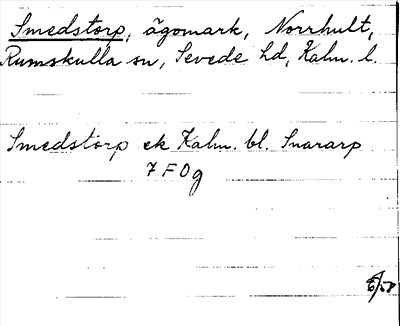 Smedstorp, ägomark, Norrhult,
Rumskulla sn, Sevede hd, Kalm. l.
Smedstorp ek Kalm. bl. Snararp
7 F 0 g